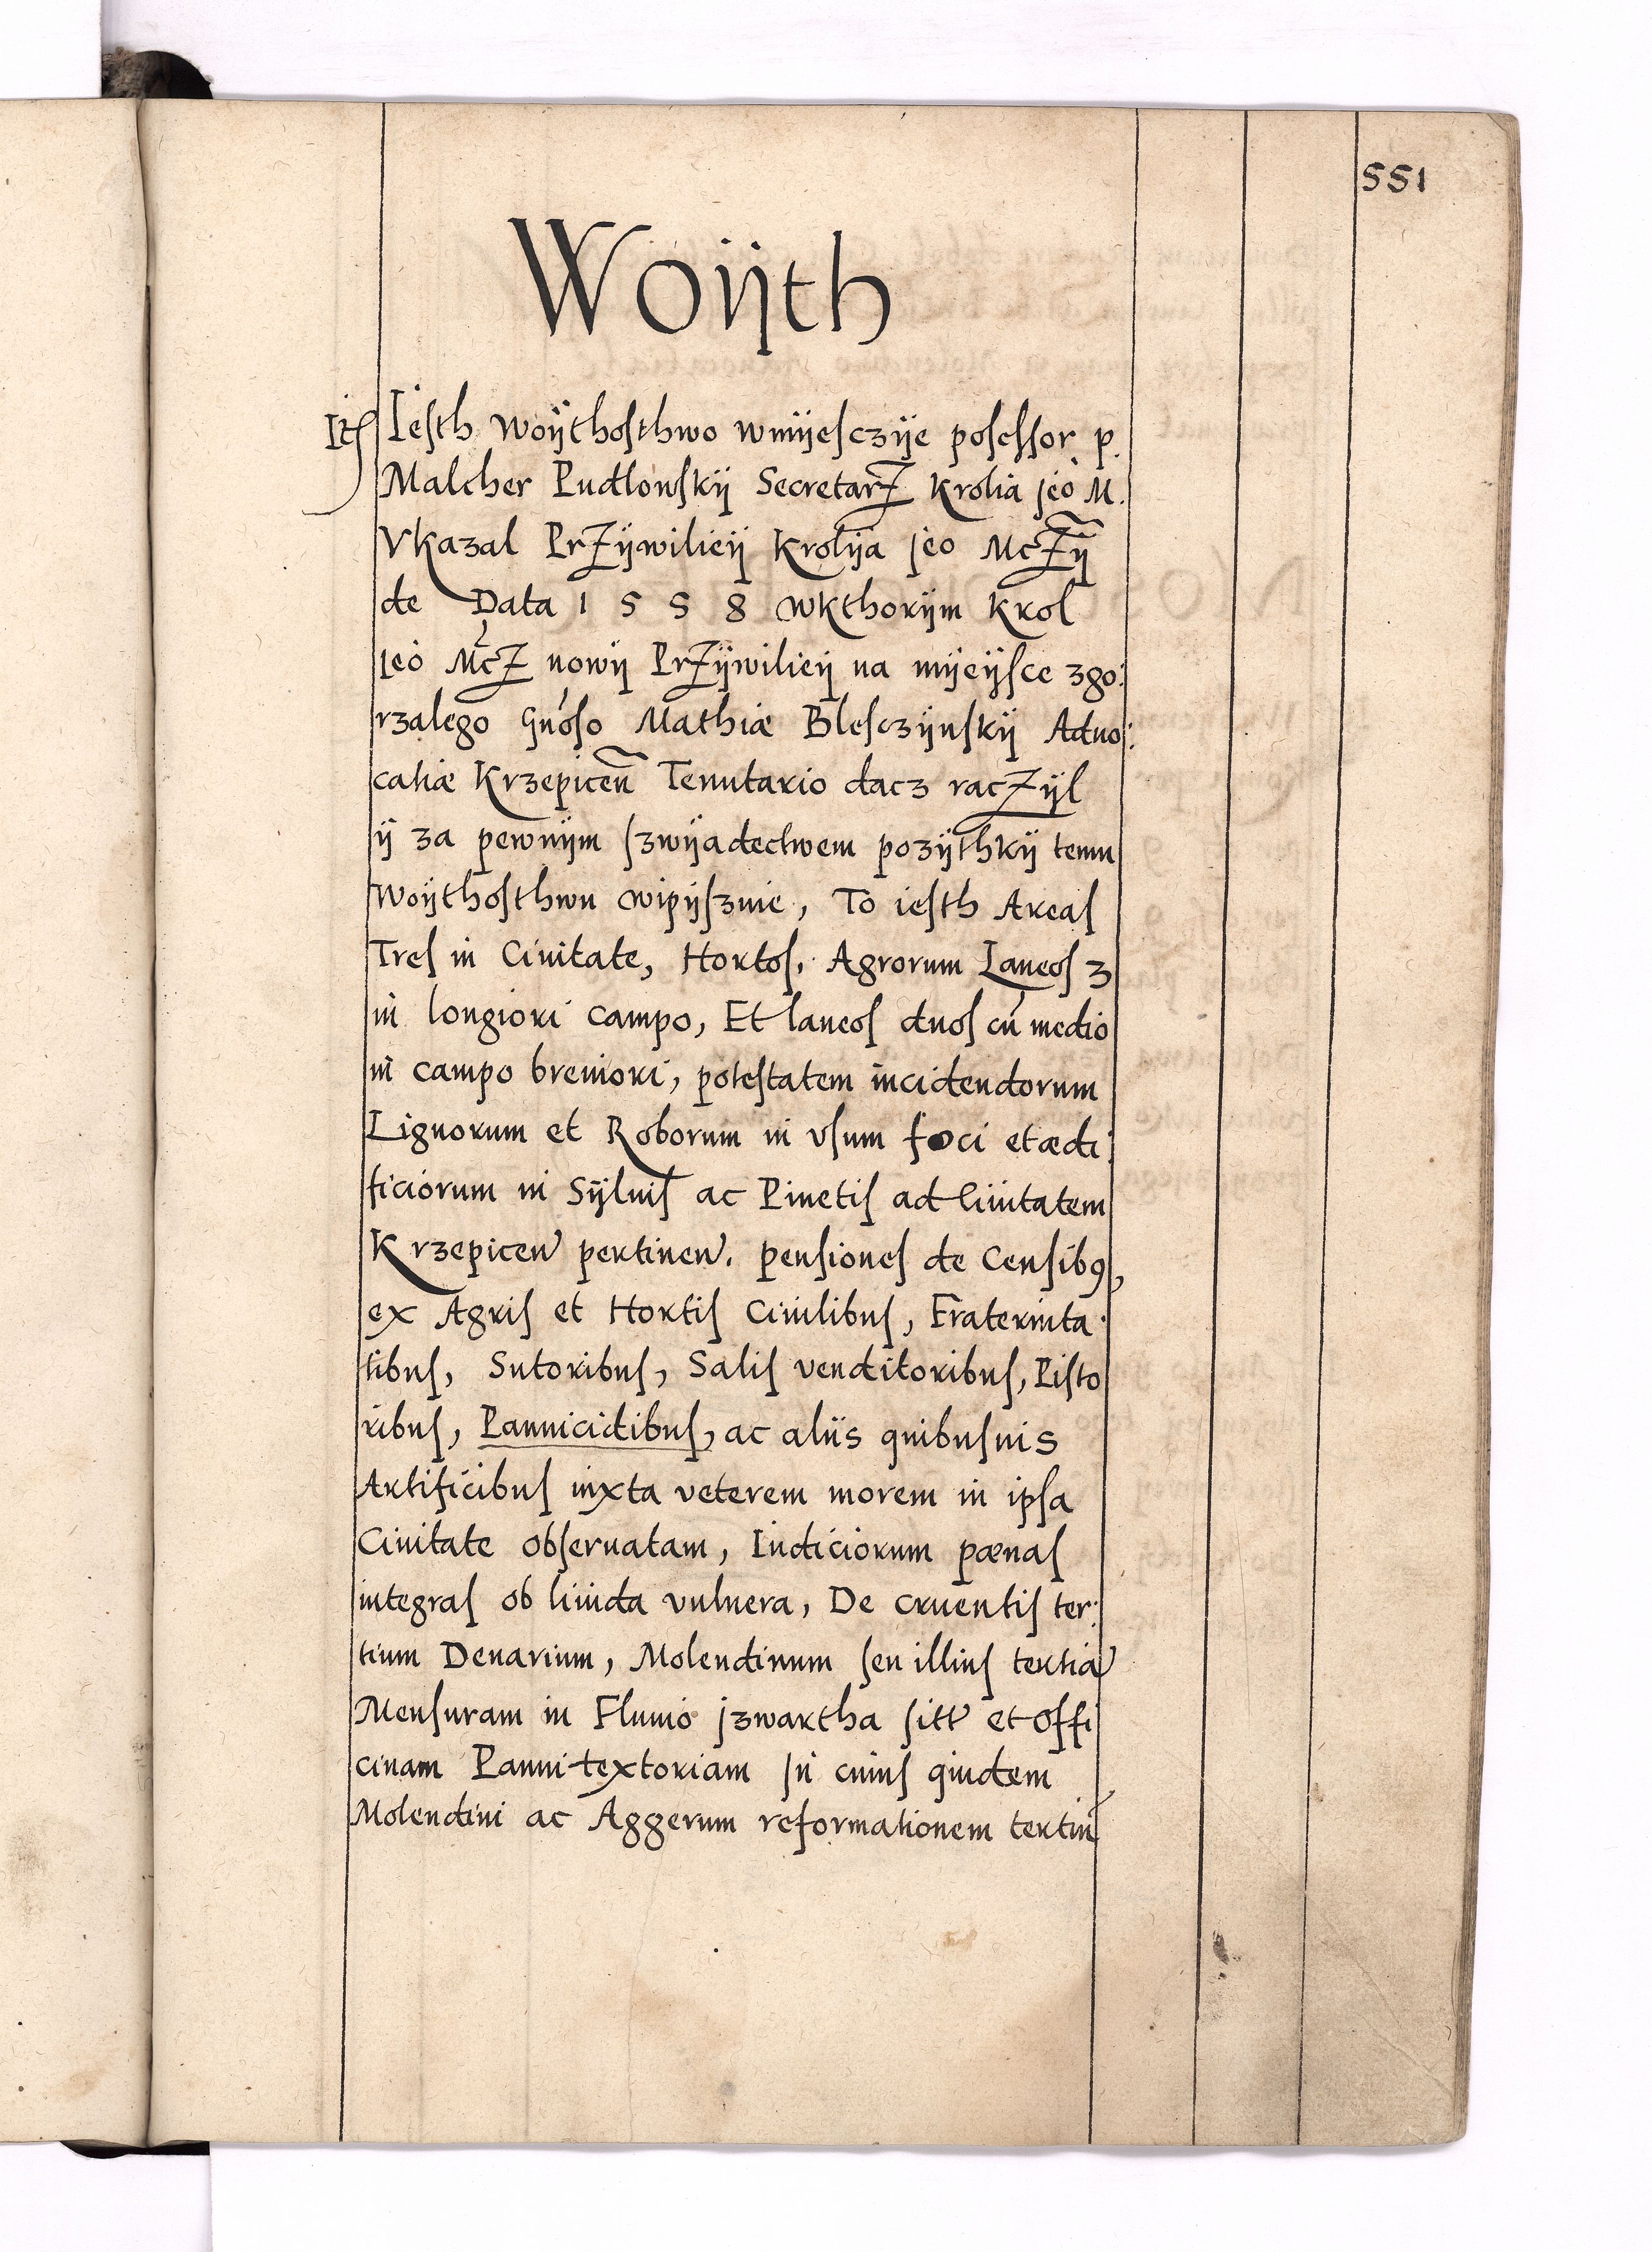 551
Woÿth
Itē Iesth woÿthosthwo wmÿesczÿe posessor p.
Malcher Pudlowskÿ Secretarz Krolia ieo M.
Vkazal Przÿwilieÿ Krolÿa ieo Mczÿ
de Data 1558 wkthorÿm Krol
ieo Mcz nowÿ Przÿwilieÿ na mÿeÿsce zgo:
rzalego Gnoso Mathiæ Blesczÿnskÿ Aduo:
catiæ Krzepiceñ Tenutario dacz raczÿl
ÿ za pewnÿm szwÿadectwem pozÿthkÿ temu
woÿthosthwu wipÿsznie, To iesth Areas
Tres in Ciuitate, Hortos, Agrorum Laneos 3
in longiori campo, Et laneos duos cū medio
in campo breuiori, potestatem incidendorum
Lignorum et Roborum in vsum foci et ædi:
ficiorum in Sÿluis ac Pinetis ad Ciuitatem
Krzepiceñ pertineñ. pensiones de Censibꝰ,
ex Agris et Hortis Ciuilibus, Fraternita:
tibus, Sutoribus, Salis venditoribus, Pisto
ribus, Pannicidibus, ac aliis quibusuis
Artificibus iuxta veterem morem in ipsa
Ciuitate obseruatam, Iudiciorum pænas
integras ob liuida vulnera, De cruentis ter:
tium Denarium, Molendinum seu illius tertiā
Mensuram in Fluuio jzwartha sitt̃ et Offi
cinam Panni textoriam in cuius quidem
Molendini ac Aggerum reformationem tertiū